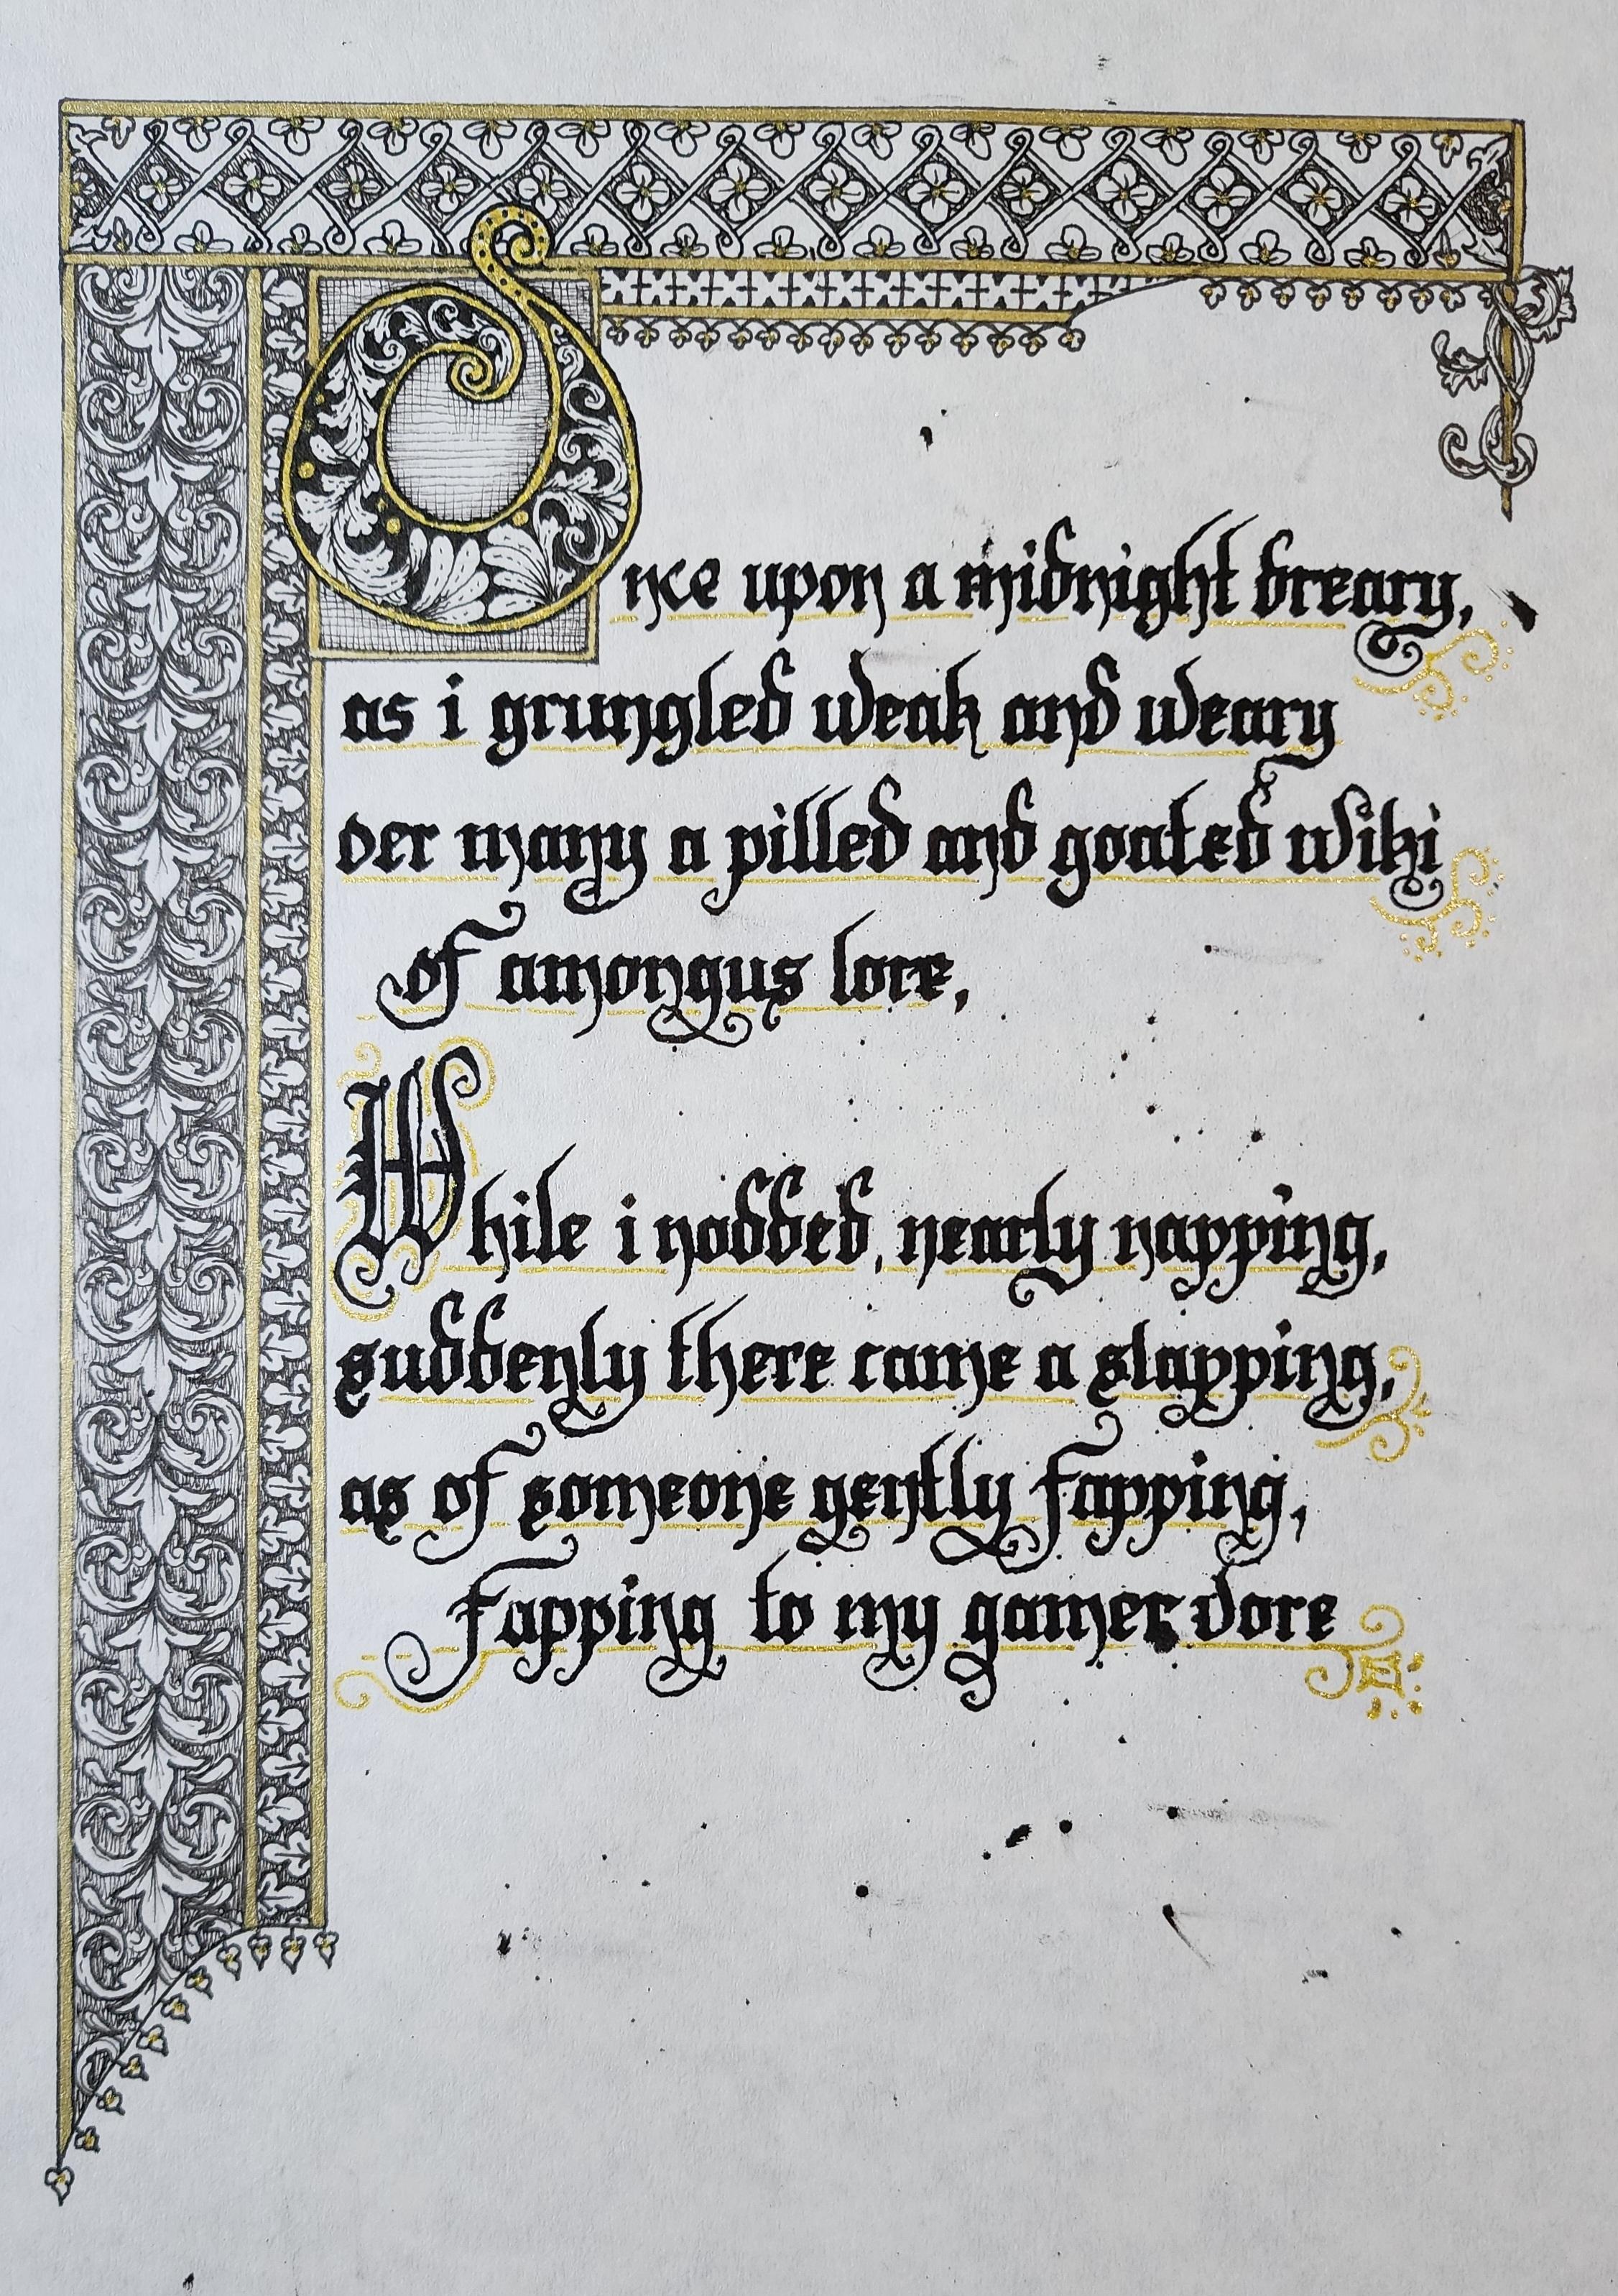 Once upon a midnight dreary,
as i grungled weak and weary
over many a pilled and goated wiki
of amongus lore,
While i nodded, nearly napping,
suddenly there came a slapping,
as of someone gently fapping,
fapping to my gamer dore